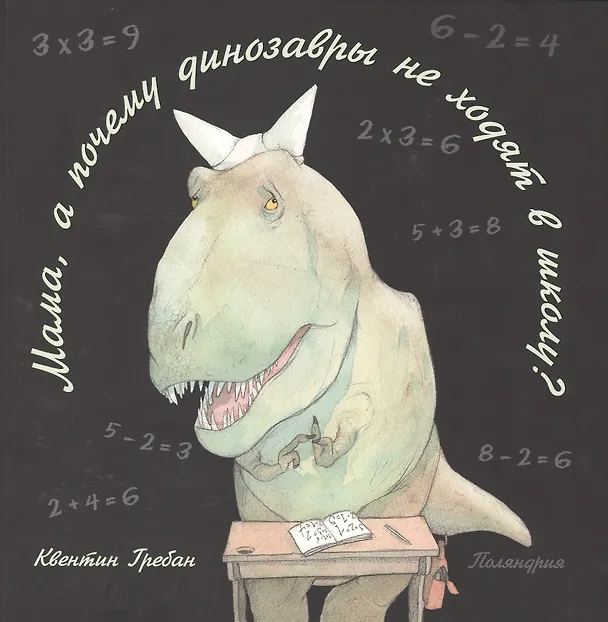 3 x 3 = 9
6 - 2 = 4
Мама, а почему динозавры не ходят в школу?
2 x 3 = 6
5 + 3 = 8
5 - 2 = 3
8 - 2 = 6
2 + 4 = 6
Квентин Гребан
Поляндрия